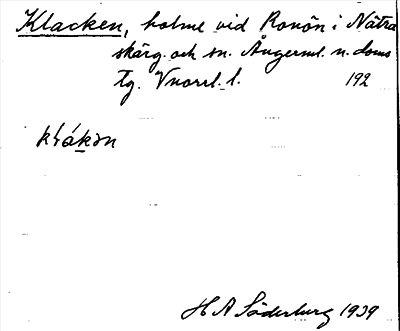 Klacken, holme vid Ronön i Nätra
skärg. och sn. Ångerml. n. doms
tg. Vnorrl. l. 192
klákən
H A Söderberg 1939